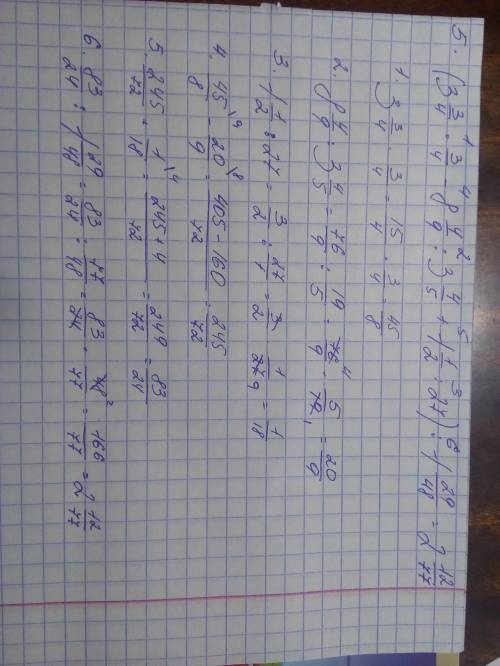 5. (3 3/4 · 3/4 - 8 4/9 : 3 4/5 + 1 1/2 : 27) : 1 29/48 = 2 12/77
1. 3 3/4 · 3/4 = 15/4 · 3/4 = 45/8
2. 8 4/9 : 3 4/5 = 76/9 : 19/5 = 76/9 · 5/19 = 20/9
3. 1 1/2 : 27 = 3/2 : 27/1 = 3/2 · 1/27 = 1/18
4. 45/8 - 20/9 = 405-160/72 = 245/72
5. 245/72 + 1/18 = 245+4/72 = 249/72 = 83/24
6. 83/24 : 1 29/48 = 83/24 : 77/48 = 83/24 · 48/77 = 166/77 = 2 12/77